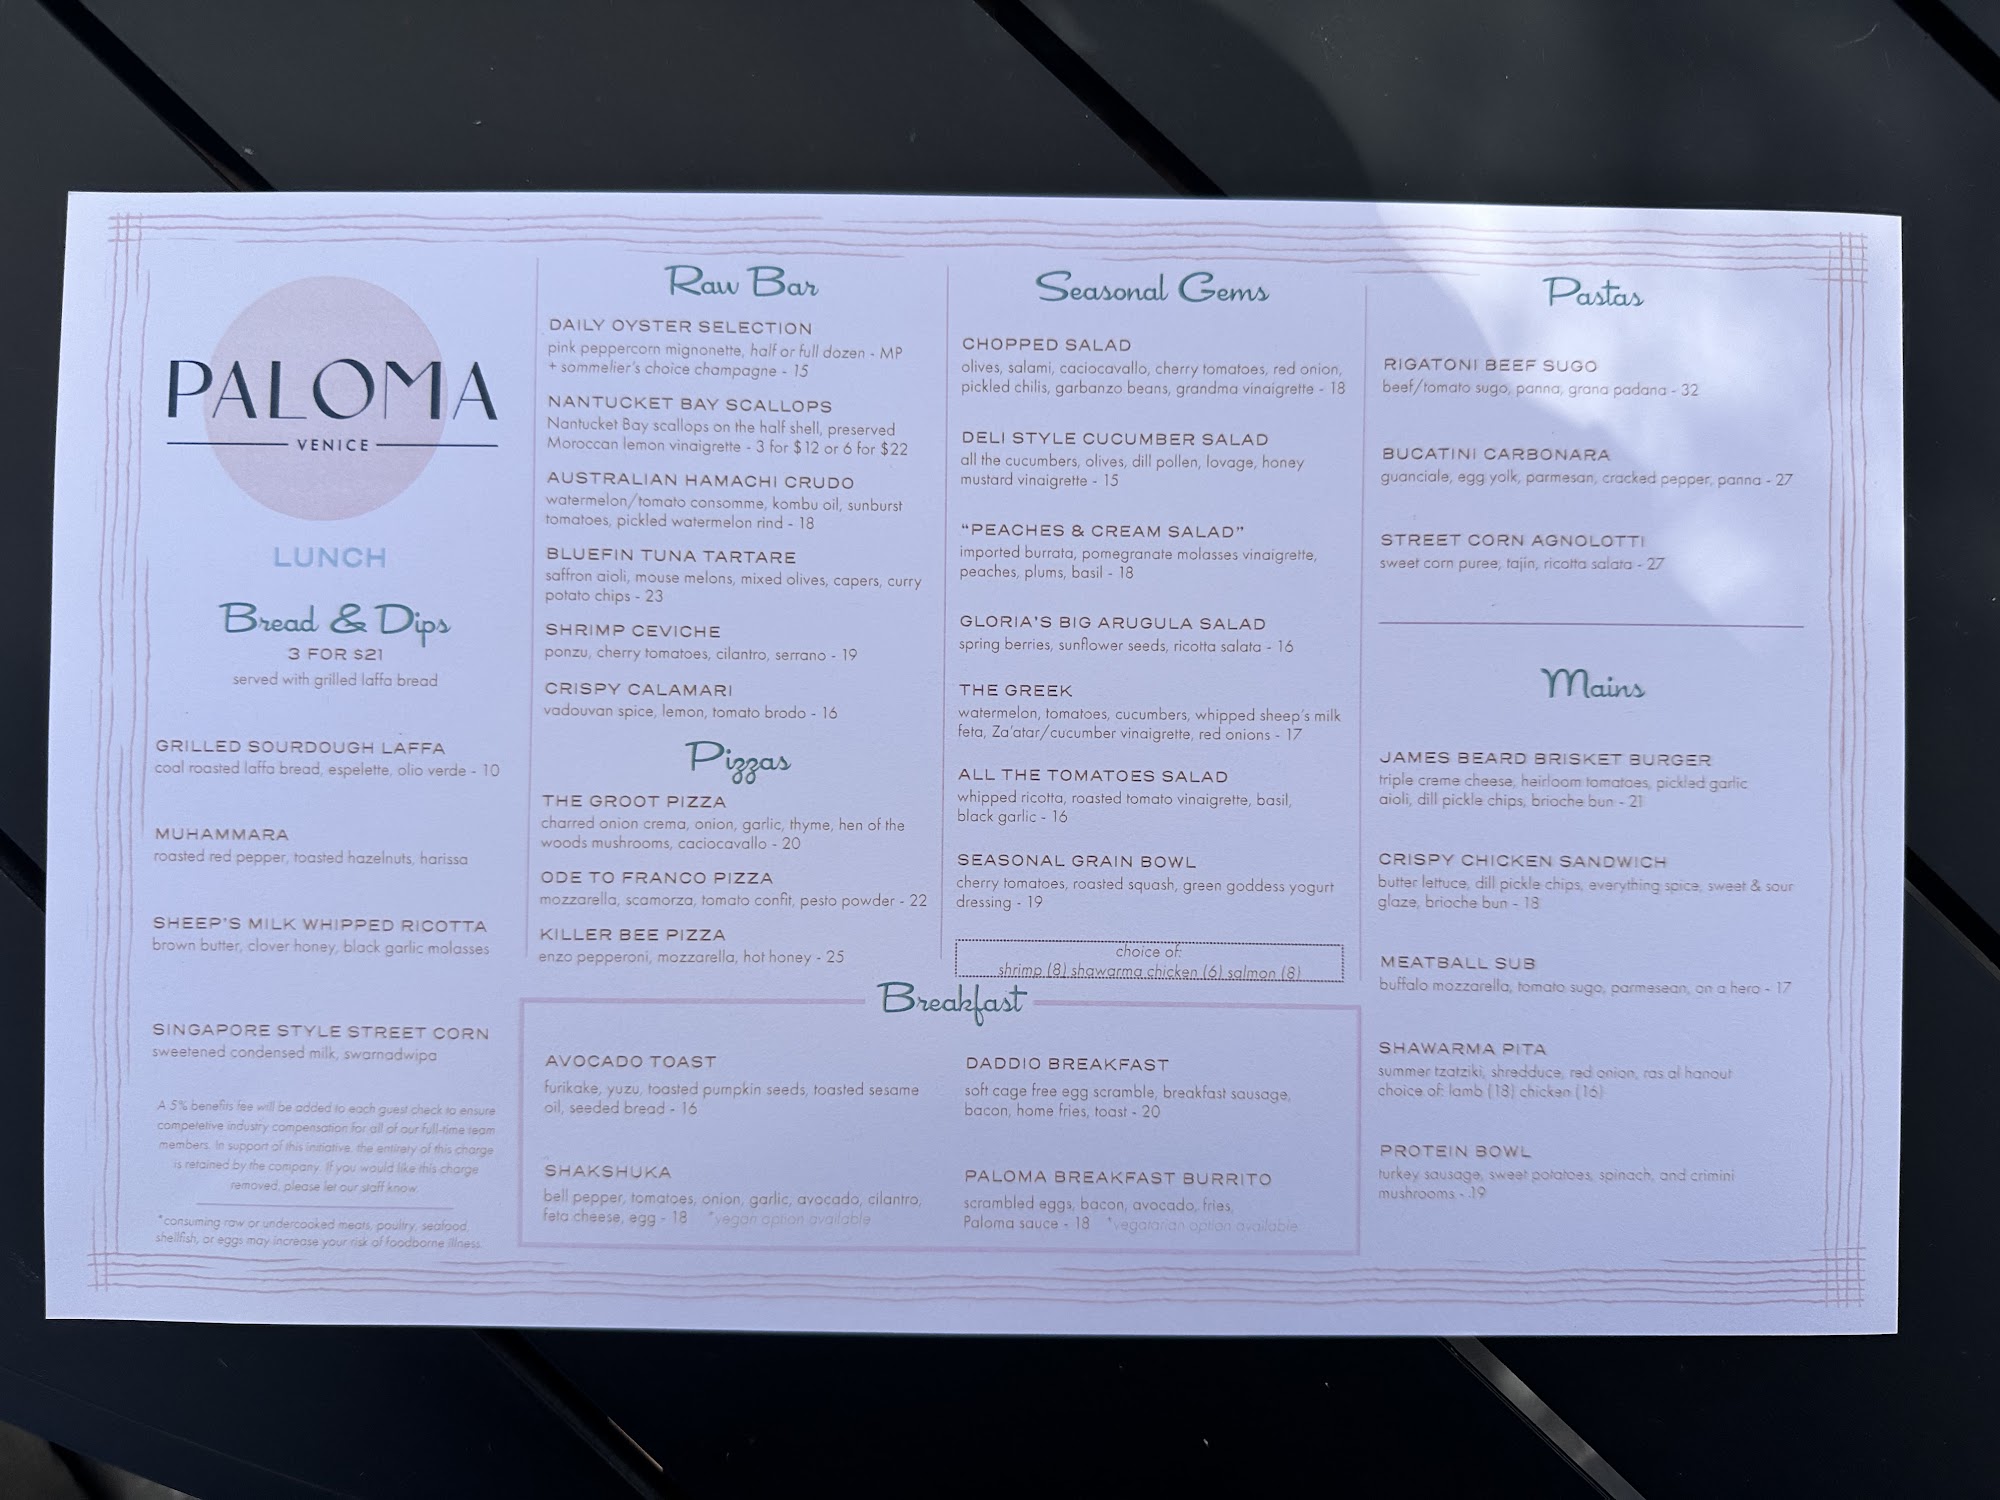 PALOMA
VENICE
LUNCH
Bread & Dips
3 FOR $21
served with grilled laffa bread
GRILLED SOURDOUGH LAFFA
coal roasted laffa bread, espelette, olio verde - 10
MUHAMMARA
roasted red pepper, toasted hazelnuts, harissa
SHEEP'S MILK WHIPPED RICOTTA
brown butter, clover honey, black garlic molasses
SINGAPORE STYLE STREET CORN
sweetened condensed milk, swarnadwipa
A 5% benefits fee will be added to each guest check to ensure
competetive industry compensation for all of our full-time team
members. In support of this initiative, the entirety of this charge
is retained by the company. If you would like this charge
removed, please let our staff know.
*consuming raw or undercooked meats, poultry, seafood,
shellfish, or eggs may increase your risk of foodborne illness.
Raw Bar
DAILY OYSTER SELECTION
pink peppercorn mignonette, half or full dozen - MP
+ sommelier's choice champagne - 15
NANTUCKET BAY SCALLOPS
Nantucket Bay scallops on the half shell, preserved
Moroccan lemon vinaigrette - 3 for $12 or 6 for $22
AUSTRALIAN HAMACHI CRUDO
watermelon/tomato consomme, kombu oil, sunburst
tomatoes, pickled watermelon rind - 18
BLUEFIN TUNA TARTARE
saffron aioli, mouse melons, mixed olives, capers, curry
potato chips - 23
SHRIMP CEVICHE
ponzu, cherry tomatoes, cilantro, serrano - 19
CRISPY CALAMARI
vadouvan spice, lemon, tomato brodo - 16
Pizzas
THE GROOT PIZZA
charred onion crema, onion, garlic, thyme, hen of the
woods mushrooms, caciocavallo - 20
ODE TO FRANCO PIZZA
mozzarella, scamorza, tomato confit, pesto powder - 22
KILLER BEE PIZZA
enzo pepperoni, mozzarella, hot honey - 25
Seasonal Gems
CHOPPED SALAD
olives, salami, caciocavallo, cherry tomatoes, red onion,
pickled chilis, garbanzo beans, grandma vinaigrette - 18
DELI STYLE CUCUMBER SALAD
all the cucumbers, olives, dill pollen, lovage, honey
mustard vinaigrette - 15
"PEACHES & CREAM SALAD"
imported burrata, pomegranate molasses vinaigrette,
peaches, plums, basil - 18
GLORIA'S BIG ARUGULA SALAD
spring berries, sunflower seeds, ricotta salata - 16
THE GREEK
watermelon, tomatoes, cucumbers, whipped sheep's milk
feta, Za'atar/cucumber vinaigrette, red onions - 17
ALL THE TOMATOES SALAD
whipped ricotta, roasted tomato vinaigrette, basil,
black garlic - 16
SEASONAL GRAIN BOWL
cherry tomatoes, roasted squash, green goddess yogurt
dressing - 19
choice of:
shrimp (8) shawarma chicken (6) salmon (8)
Breakfast
AVOCADO TOAST
furikake, yuzu, toasted pumpkin seeds, toasted sesame
oil, seeded bread - 16
SHAKSHUKA
bell pepper, tomatoes, onion, garlic, avocado, cilantro,
feta cheese, egg - 18 *vegan option available
DADDIO BREAKFAST
soft cage free egg scramble, breakfast sausage,
bacon, home fries, toast - 20
PALOMA BREAKFAST BURRITO
scrambled eggs, bacon, avocado, fries,
Paloma sauce - 18 *vegatarian option available
Pastas
RIGATONI BEEF SUGO
beef/tomato sugo, panna, grana padana - 32
BUCATINI CARBONARA
guanciale, egg yolk, parmesan, cracked pepper, panna - 27
STREET CORN AGNOLOTTI
sweet corn puree, tajin, ricotta salata - 27
Mains
JAMES BEARD BRISKET BURGER
triple creme cheese, heirloom tomatoes, pickled garlic
aioli, dill pickle chips, brioche bun - 21
CRISPY CHICKEN SANDWICH
butter lettuce, dill pickle chips, everything spice, sweet & sour
glaze, brioche bun - 18
MEATBALL SUB
buffalo mozzarella, tomato sugo, parmesean, on a hero - 17
SHAWARMA PITA
summer tzatziki, shredduce, red onion, ras al hanout
choice of: lamb (18) chicken (16)
PROTEIN BOWL
turkey sausage, sweet potatoes, spinach, and crimini
mushrooms - 19